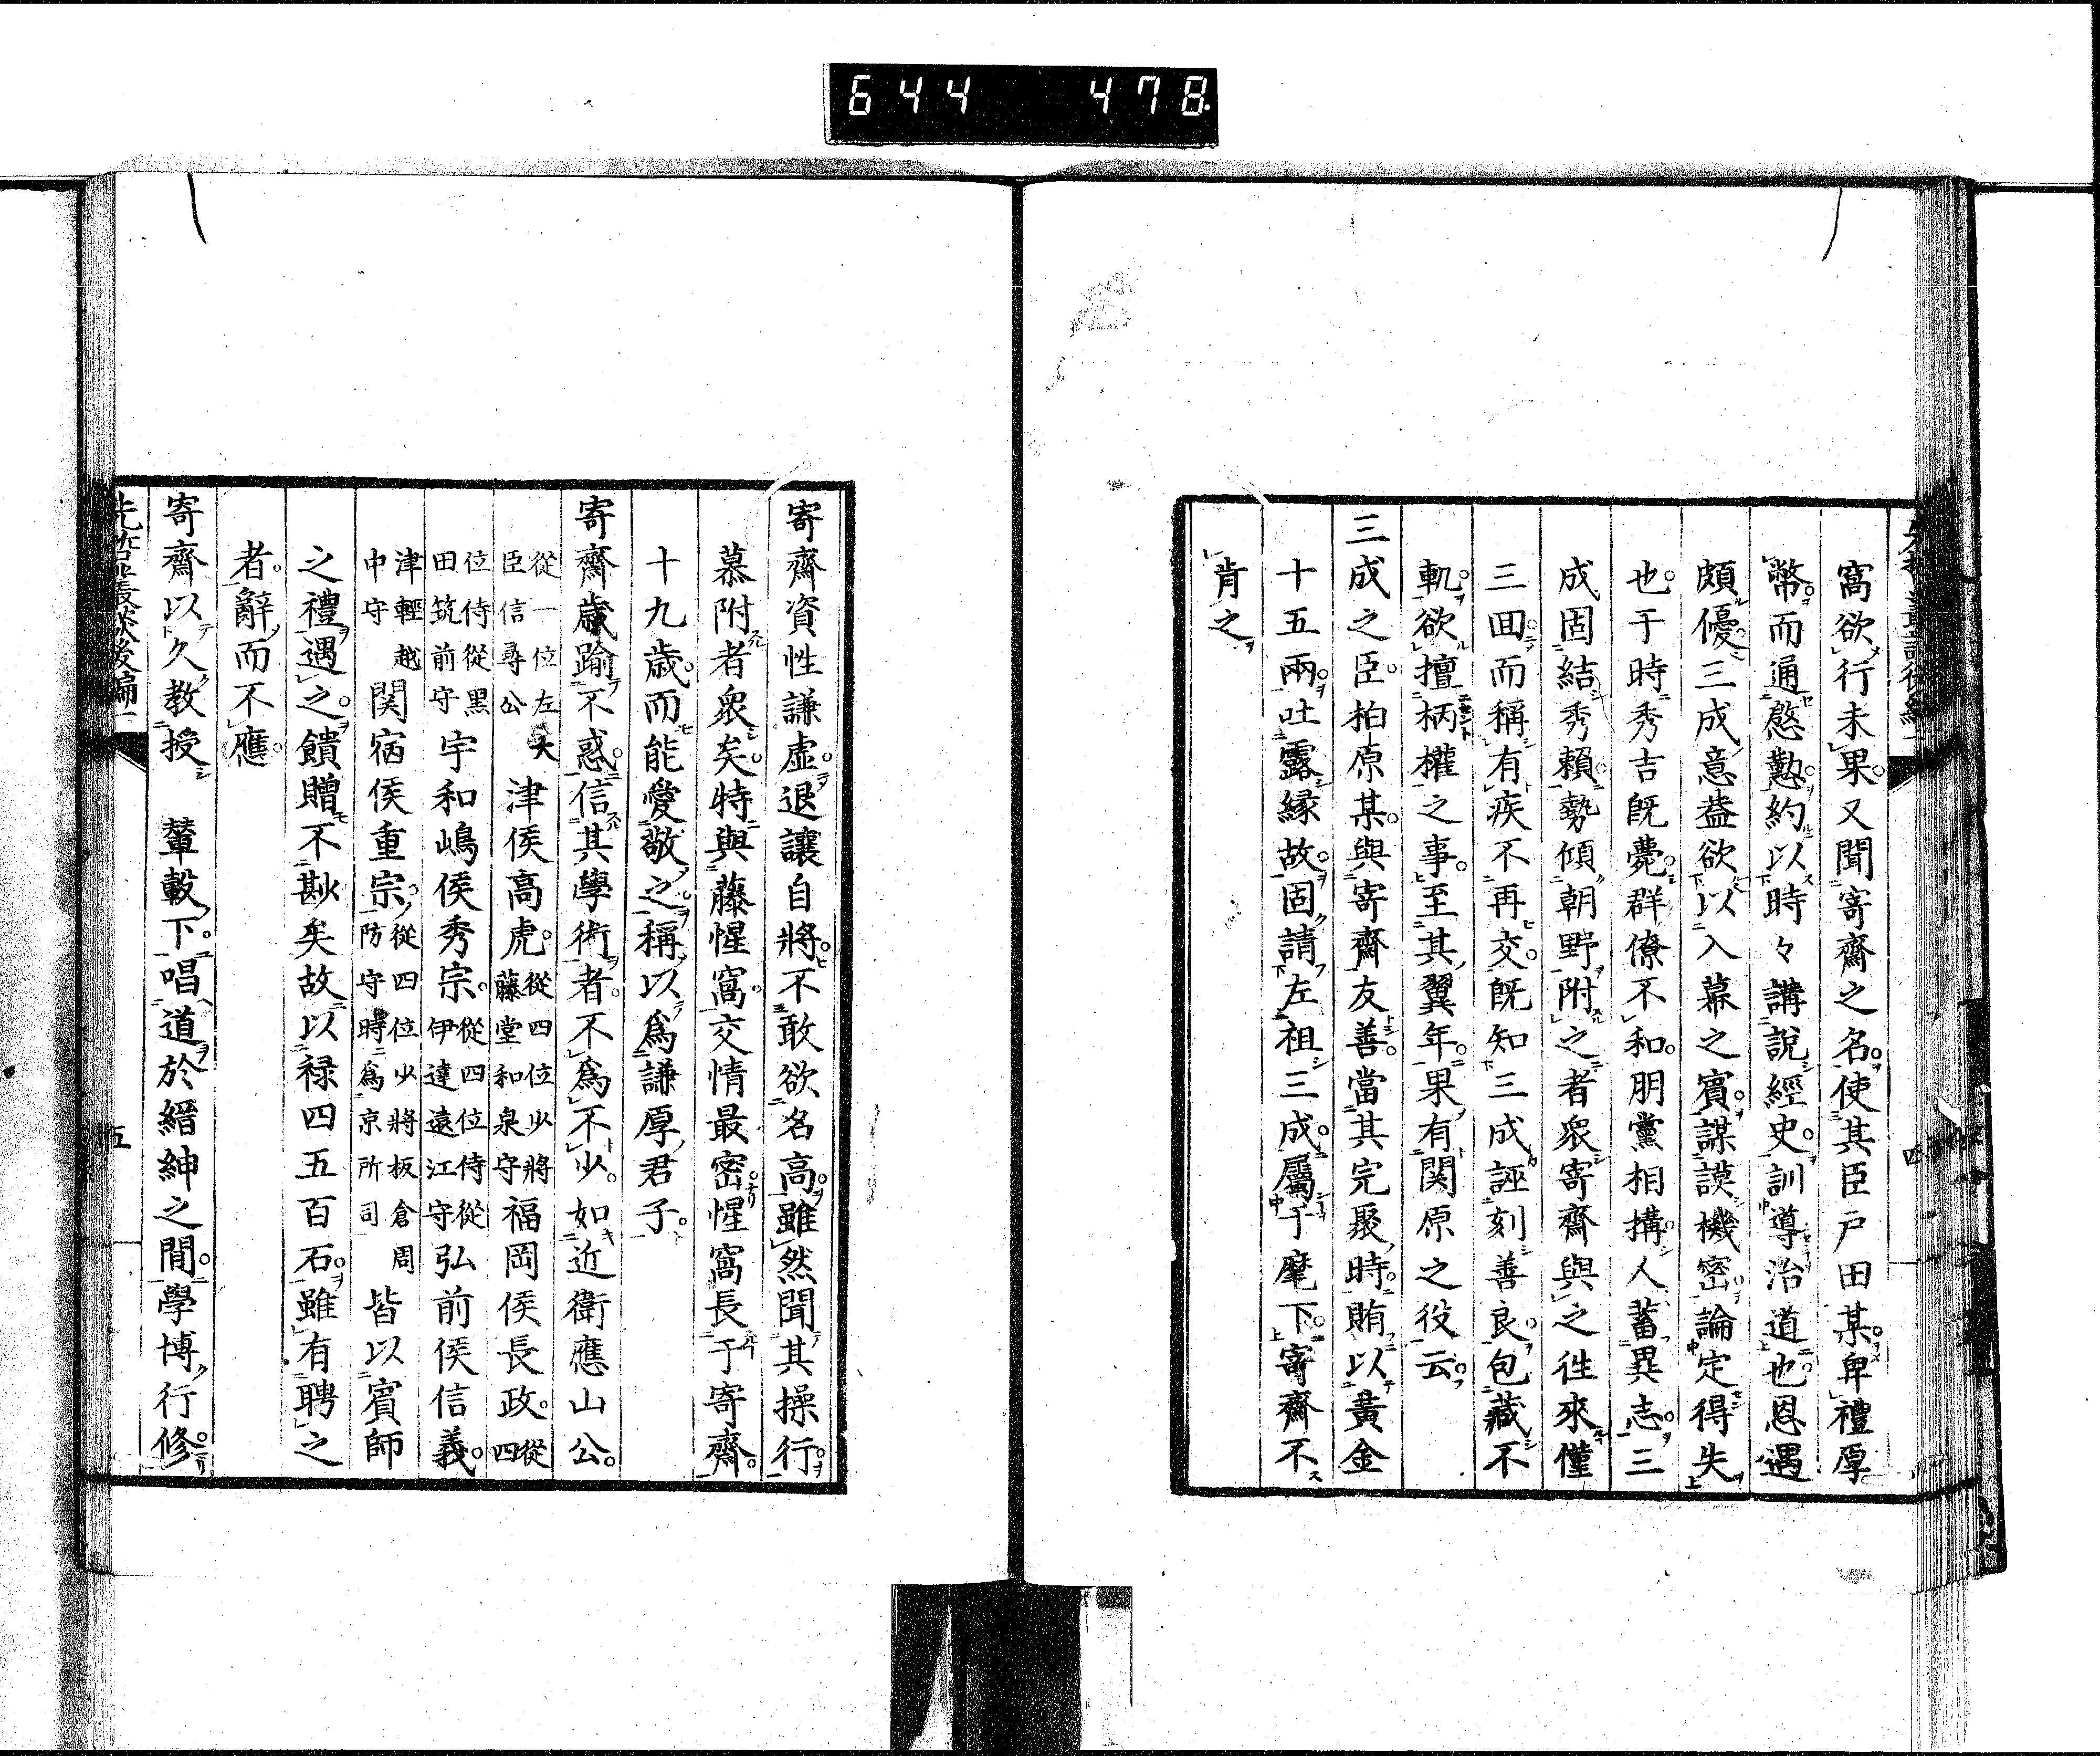 644 478
窩欲行未果又聞寄齋之名使其臣戸田某卑禮厚
幣而通慇懃約以時々講說經史訓導治道也恩遇
頗優三成意益欲以入幕之賓謀謨機密論定得失
也于時秀吉既薨群僚不和朋黨相搆人蓄異志三
成固結秀賴勢傾朝野附之者衆寄齋與之徃來僅
三回而稱有疾不再交既知三成誣刻善良包藏不
軌欲擅柄權之事至其翼年果有関原之役云
三成之臣柏原某與寄齋友善當其完聚時賄以黃金
十五兩吐露緣故固請左祖三成屬于麾下寄齋不
肯之
寄齋資性謙虛退讓自將不敢欲名高雖然聞其操行
慕附者衆矣特與藤惺窩交情最密惺窩長于寄齋
十九歲而能愛敬之稱以爲謙厚君子
寄齋歲踰不惑信其學術者不爲不少如近衛應山公
從一位左大臣信尋公 津侯高虎 從四位少將藤堂和泉守 福岡侯長政 從四
位侍從黒田筑前守 宇和嶋侯秀宗 從四位侍從伊達遠江守 弘前侯信義 從
津輕越中守 関宿侯重宗 從四位少將板倉周防守時爲京所司 皆以賓師
之禮遇之饋贈不尠矣故以禄四五百石雖有聘之
者辭而不應
寄齋以久教授 輦轂下唱道於縉紳之間學博行修
先哲叢談後編一
五